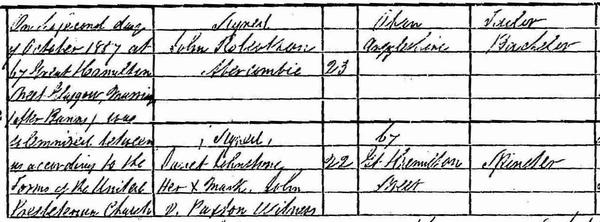 On the second day Signed Oban Sailor
of October 1887 at John Robertson Argyleshire Bachelor
67 Great Hamilton Abercombie 23
Street Glasgow, Marriage
(after Banns) was
solemnized between (Signed) 67
us according to the Janet Johnstone 22 Gt Hamilton Spinster
Forms of the United Her X Mark. John Street
Presbyterian Church v. Paxton Witness